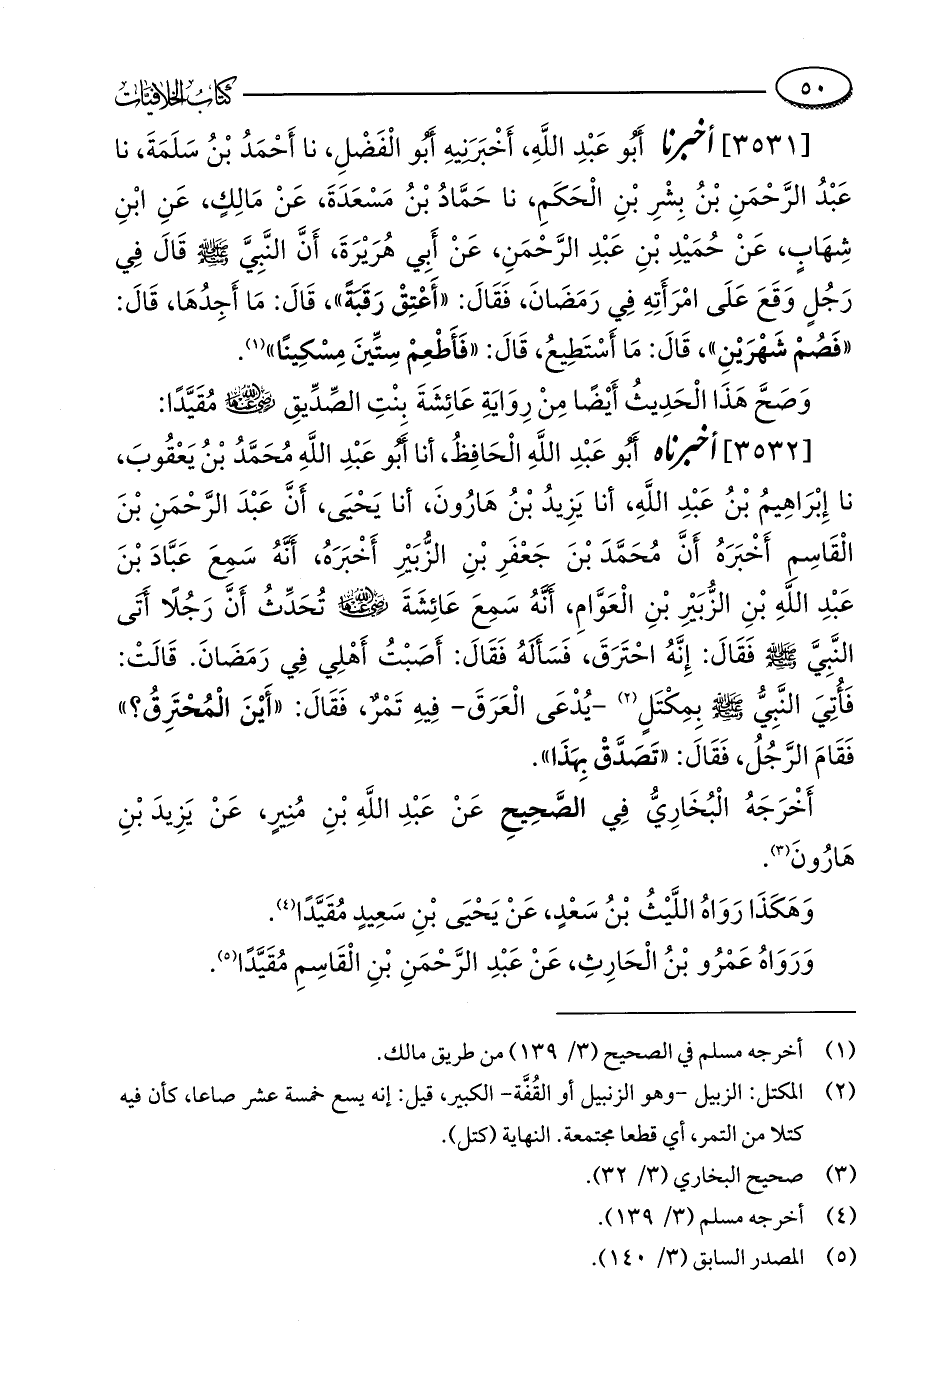 ٥٠
كتاب الخلافيات
[٣٥٣١] أخبرنا أَبُو عَبْدِ اللَّهِ، أَخْبَرَنِيهِ أَبُو الْفَضْلِ، نا أَحْمَدُ بْنُ سَلَمَةَ، نا
عَبْدُ الرَّحْمَنِ بْنُ بِشْرِ بْنِ الْحَكَمِ، نا حَمَّادُ بْنُ مَسْعَدَةَ، عَنْ مَالِكٍ، عَنِ ابْنِ
شِهَابٍ، عَنْ حُمَيْدِ بْنِ عَبْدِ الرَّحْمَنِ، عَنْ أَبِي هُرَيْرَةَ، أَنَّ النَّبِيَّ ﷺ قَالَ فِي
رَجُلٍ وَقَعَ عَلَى امْرَأَتِهِ فِي رَمَضَانَ، فَقَالَ: «أَعْتِقْ رَقَبَةً»، قَالَ: مَا أَجِدُهَا، قَالَ:
«فَصُمْ شَهْرَيْنِ»، قَالَ: مَا أَسْتَطِيعُ، قَالَ: «فَأَطْعِمْ سِتِّينَ مِسْكِينًا»(١).
وَصَحَّ هَذَا الْحَدِيثُ أَيْضًا مِنْ رِوَايَةِ عَائِشَةَ بِنْتِ الصِّدِّيقِ رضي الله عنها مُقَيَّدًا:
[٣٥٣٢] أخبرناه أَبُو عَبْدِ اللَّهِ الْحَافِظُ، أنا أَبُو عَبْدِ اللَّهِ مُحَمَّدُ بْنُ يَعْقُوبَ،
نا إِبْرَاهِيمُ بْنُ عَبْدِ اللَّهِ، أنا يَزِيدُ بْنُ هَارُونَ، أنا يَحْيَى، أَنَّ عَبْدَ الرَّحْمَنِ بْنَ
الْقَاسِمِ أَخْبَرَهُ أَنَّ مُحَمَّدَ بْنَ جَعْفَرِ بْنِ الزُّبَيْرِ أَخْبَرَهُ، أَنَّهُ سَمِعَ عَبَّادَ بْنَ
عَبْدِ اللَّهِ بْنِ الزُّبَيْرِ بْنِ الْعَوَّامِ، أَنَّهُ سَمِعَ عَائِشَةَ رضي الله عنها تُحَدِّثُ أَنَّ رَجُلًا أَتَى
النَّبِيَّ ﷺ فَقَالَ: إِنَّهُ احْتَرَقَ، فَسَأَلَهُ فَقَالَ: أَصَبْتُ أَهْلِي فِي رَمَضَانَ. قَالَتْ:
فَأُتِيَ النَّبِيُّ ﷺ بِمِكْتَلٍ(٢) -يُدْعَى الْعَرَقَ- فِيهِ تَمْرٌ، فَقَالَ: «أَيْنَ الْمُحْتَرِقُ؟»
فَقَامَ الرَّجُلُ، فَقَالَ: «تَصَدَّقْ بِهَذَا».
أَخْرَجَهُ الْبُخَارِيُّ فِي الصَّحِيحِ عَنْ عَبْدِ اللَّهِ بْنِ مُنِيرٍ، عَنْ يَزِيدَ بْنِ
هَارُونَ(٣).
وَهَكَذَا رَوَاهُ اللَّيْثُ بْنُ سَعْدٍ، عَنْ يَحْيَى بْنِ سَعِيدٍ مُقَيَّدًا(٤).
وَرَوَاهُ عَمْرُو بْنُ الْحَارِثِ، عَنْ عَبْدِ الرَّحْمَنِ بْنِ الْقَاسِمِ مُقَيَّدًا(٥).
(١) أخرجه مسلم في الصحيح (٣/ ١٣٩) من طريق مالك.
(٢) المكتل: الزبيل -وهو الزنبيل أو القُفَّة- الكبير، قيل: إنه يسع خمسة عشر صاعا، كأن فيه
كتلا من التمر، أي قطعا مجتمعة. النهاية (كتل).
(٣) صحيح البخاري (٣/ ٣٢).
(٤) أخرجه مسلم (٣/ ١٣٩).
(٥) المصدر السابق (٣/ ١٤٠).